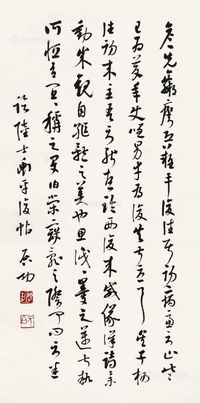 彦先羸瘵恐難平復往屬初病慮不止此此
已為慶承使唯男幸為復失前憂耳吳子楊
往初來主吾不能盡臨西復來威儀詳跱舉
動成觀自軀體之美也思識量之邁前執
所恒有宜稱之夏伯榮寇亂之際聞問不悉
陸士衡平復帖 啟功